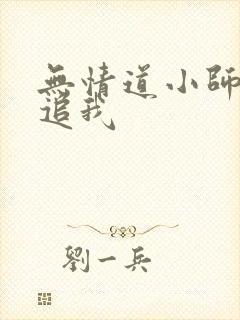 無情道小師
追我
劉一兵